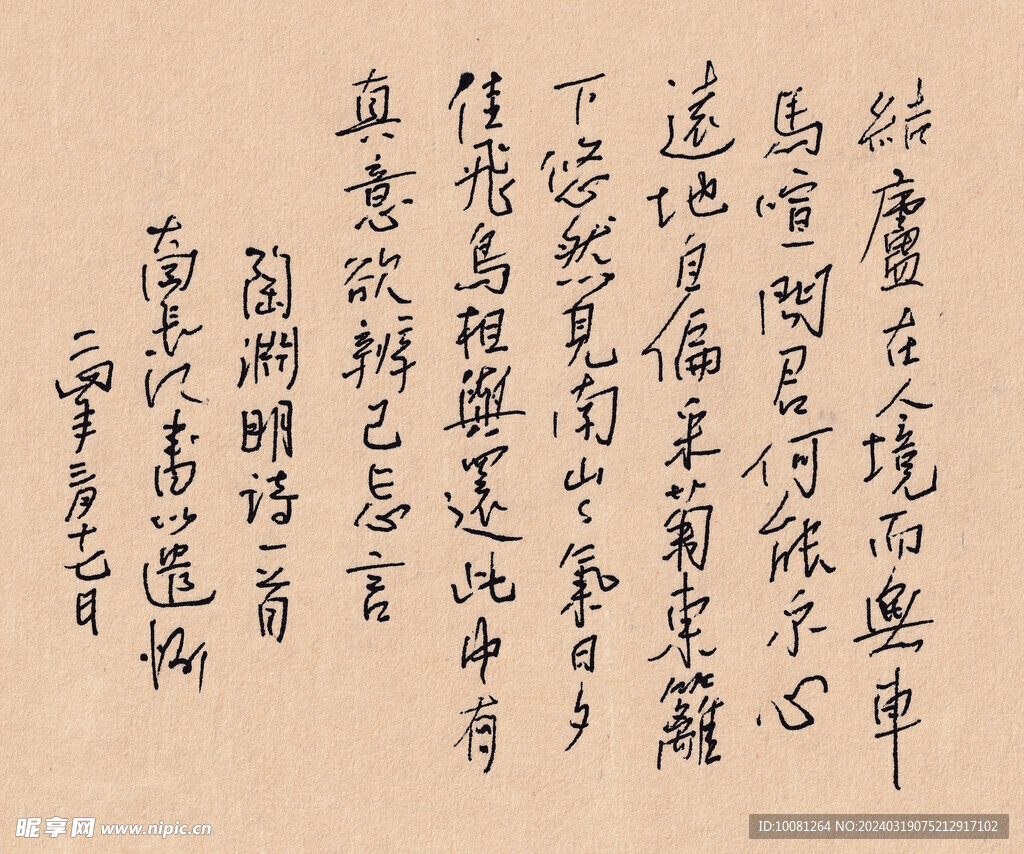 結廬在人境而無車
馬喧問君何能尔心
遠地自偏采菊東籬
下悠然見南山山氣日夕
佳飛鳥相與還此中有
真意欲辨已忘言
陶淵明詩一首
長江書以遣
二四年三月十七日
昵享网 www.nipic.cn
ID:10081264 NO:20240319075212917102